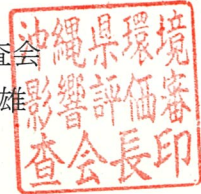 査会
雄
沖縄県環境
影響評価審
査会長印